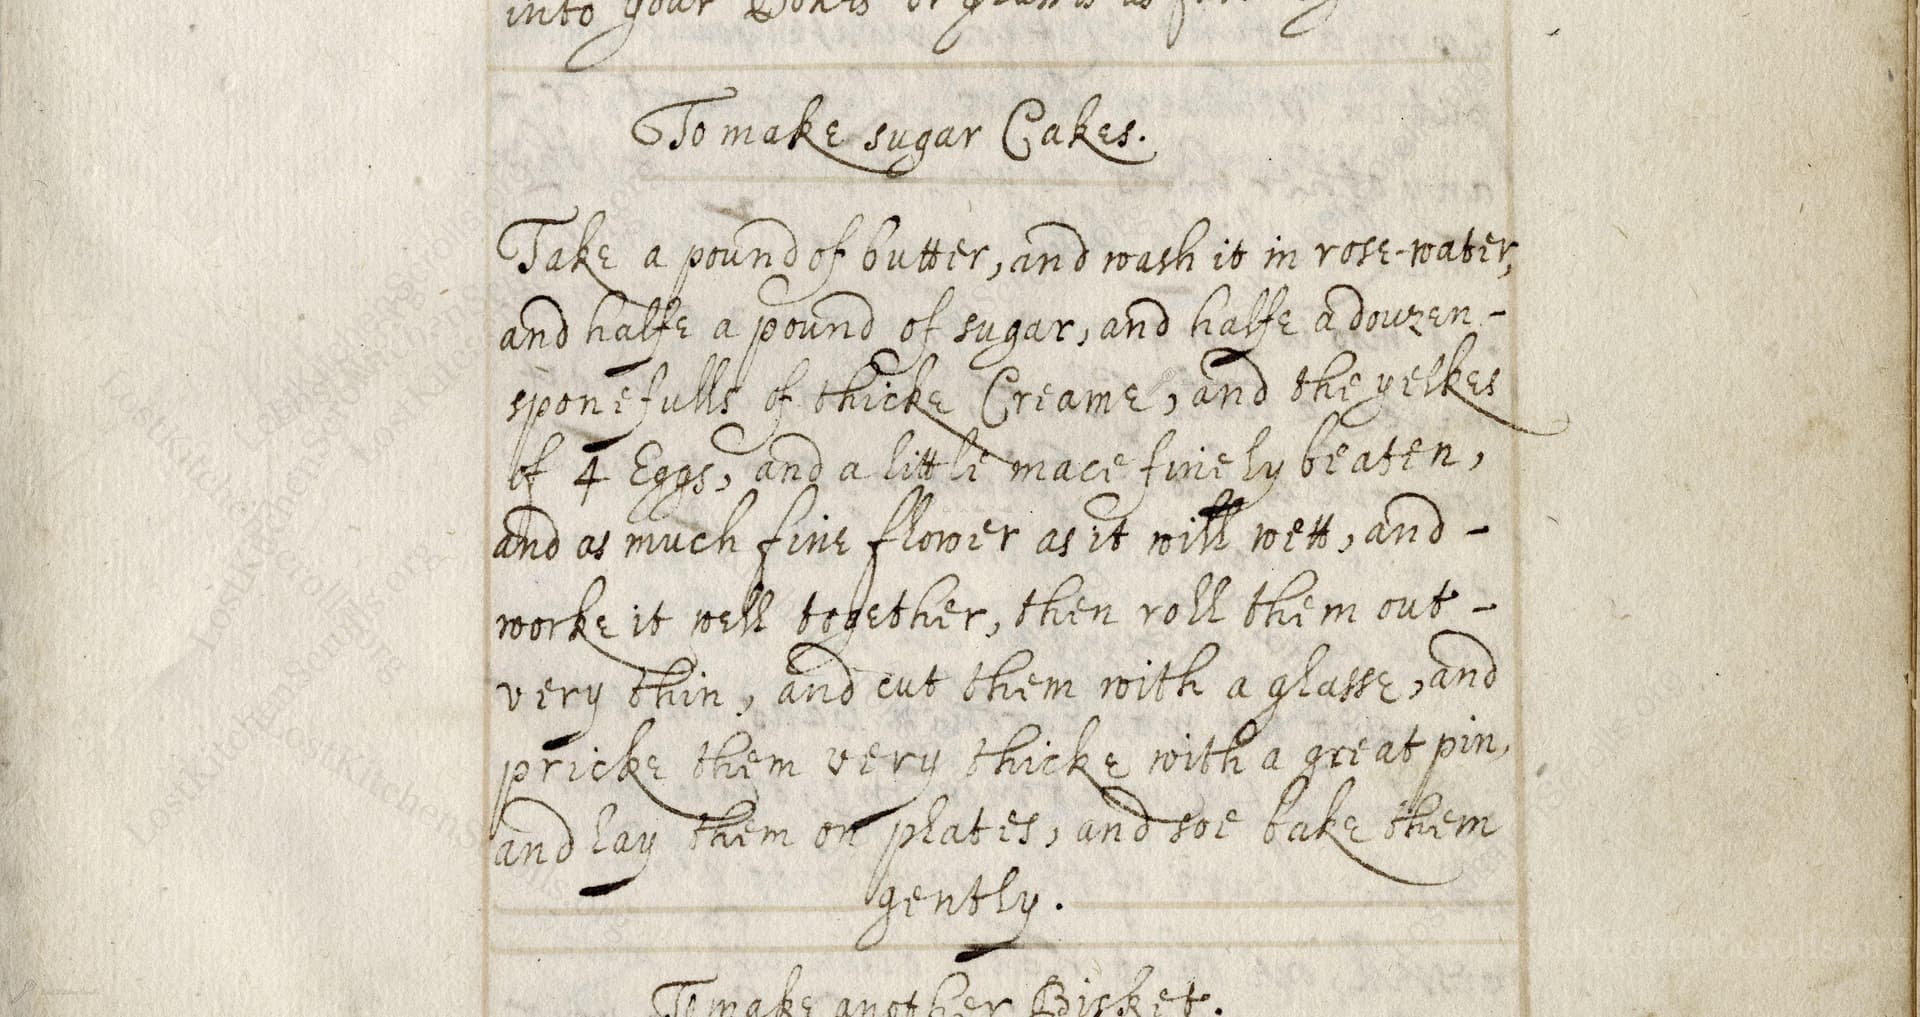 into your
To make sugar Cakes.
Take a pound of butter, and wash it in rose-water,
and halfe a pound of sugar, and halfe a douzen -
sponefulls of thicke Creame, and the yelkes
of 4 Eggs, and a little mace finely beaten,
and as much fine flower as it will wett, and -
worke it well together, then roll them out -
very thin, and cut them with a glasse, and
pricke them very thicke with a great pin,
and lay them on plates, and soe bake them
gently.
To make another Bisket.